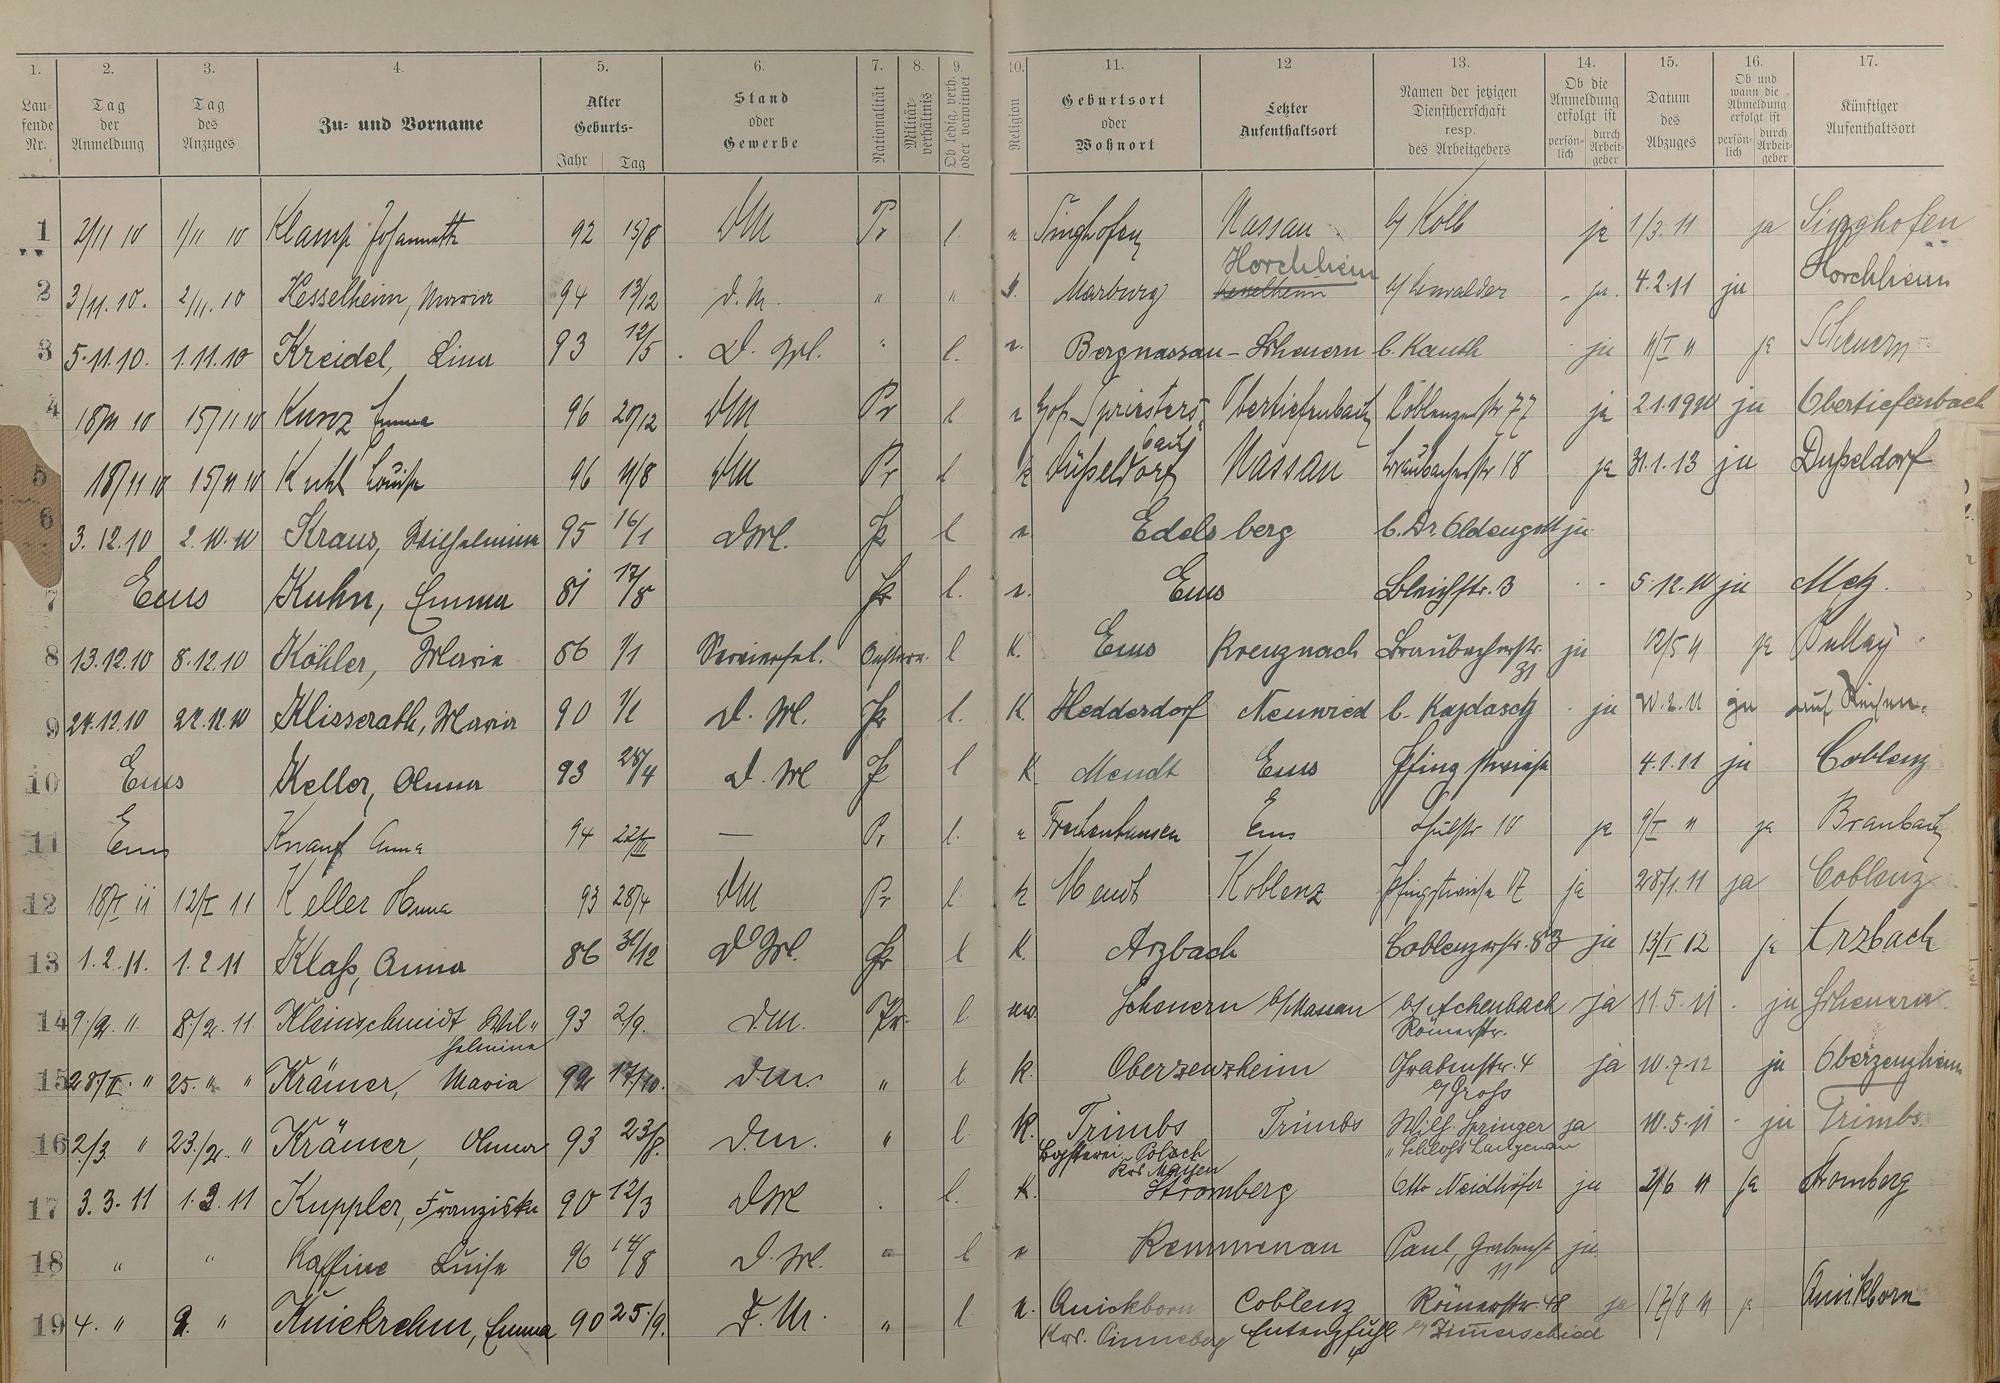 1. 2. 3. 4. 5. 6. 7. 8. 9. 10. 11. 12. 13. 14. 15. 16. 17.
Lau-fende Nr. Tag der Anmeldung Tag des Anzuges Zu- und Vorname Alter Geburts- Jahr Tag Stand oder Gewerbe Nationalität Militär-verhältnis Ob ledig, verh. oder verwitwet Religion Geburtsort oder Wohnort Letzter Aufenthaltsort Namen der jetzigen Dienstherrschaft resp. des Arbeitgebers Ob die Anmeldung erfolgt ist persön-lich durch Arbeit-geber Datum des Abzuges Ob und wann die Abmeldung erfolgt ist persön-lich durch Arbeit-geber Künftiger Aufenthaltsort
1 2/11 10 1/11 10 Klamp Johannette 92 15/8 DM Pr l. Singhofen Nassau b/ Kolb ja 1/3. 11 ja Singhofen
Horchheim
2 3/11. 10. 2/11. 10 Kesselheim, Maria 94 13/12 d. M. " " Marburg ja. 4.2.11 ja Horchheim
3 5.11.10. 1.11.10 Kreidel, Lina 93 12/5 D. Ml. " l. Bergnassau-Scheuern b. Kauth ja 11/I 11 ja Scheuern
4 18/11 10 15/11 10 Kunz Emma 96 20/12 DM Pr l Hof Spriesters- Obertiefenbach Coblenzerstr 77 ja 2.1.1910 ja Obertiefenbach
bach
5 18/11 10 15/11 10 Kuhl Louise 96 11/8 DM Pr l k Düßeldorf Nassau Braubacherstr 18 ja 31.1.13 ja Dußeldorf
6 3.12.10 2.10.10 Kraus, Wilhelmine 95 16/1 DMl. Pr l Edelsberg b. Dr. Oldengott ja
7 Ems Kuhn, Emma 81 17/8 Pr l. Ems Bleichstr. 3 5.12.10 ja Metz.
8 13.12.10 8.12.10 Köhler, Maria 86 1/1 l K. Ems Kreuznach Braubacherstr. ja 12/5 11 ja Pullay
31
9 24.12.10 22.12.10 Klisserath, Maria 90 D. Ml. Pr l. K. Heddersdorf Neuwied b. Kajdasch ja 10.2.11 ja auf Reisen.
10 Ems Keller, Anna 93 28/4 D. Ml Pr l K. Mendt Ems Pfingstwiese 4.1.11 ja Coblenz
11 Ems Knauf Anna 94 22/III — Pr l. Frechenhausen Ems Schulstr 10 ja 9/I 11 ja Braubach
12 18/I 11 12/I 11 Keller Anna 93 28/4 DM Pr l. k Mendt Koblenz Pfingstwiese 17 ja 28/1. 11 ja Coblenz
13 1.2.11. 1.2.11 Klaß, Anna 86 31/12 D Ml. Pr l K. Arzbach Coblenzerstr. 83 ja 13/I 12 ja Arzbach
14 9./2. 11. 8./2. 11 Kleinschmidt Wil- 93 2/9. d.M. Pr. l. Scheuern b/Nassau b/ Achenbach ja 11.5.11 ja Scheuern
helmine Römerstr.
15 28/II. " 25. " " Krämer, Maria 92 17/10. d.M. " l. K. Oberzenzheim Grabenstr. 4 ja 10.7.12 ja Oberzenzheim
b/ Groß
16 2/3 " 23./2. " Krämer, Anna 93 23/8. d.M. " l. K. Trimbs Trimbs Wilh. Springer ja 10.5.11 ja Trimbs
Polsch Schloß Langenau
Krs Mayen
17 3.3.11 1.3.11 Kuppler, Franziska 90 12/3 DMl l. K. Stromberg Otto Neidhöfer ja 2/6 11 ja Stromberg
18 " " Kaffine Luise 96 14/8 D. Ml. " l Kemmenau Paul, Grabenst ja
11
19 4. " 2. " Knickrehm, Emma 90 25./9. D. M. " l Quickborn Coblenz Römerstr. 48 ja 17/8 11 Quickborn
Krs. Pinneberg Entenpfuhl b/ Zimmerschied
4